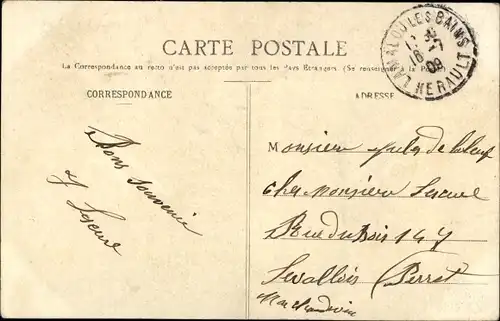 CARTE POSTALE
La Correspondance au recto n'est pas acceptée par tous les pays Étrangers. (Se renseigner à la Poste)
CORRESPONDANCE
ADRESSE
LAMALOU LES BAINS
16 -7
09
HERAULT
Bons souvenir
J Lescure
Monsieur Jules
chez Monsieur Lescure
Rue du Bois 147
Levallois Perret